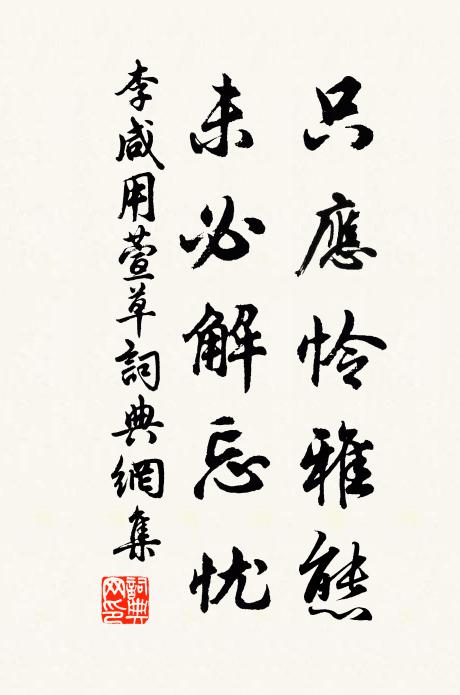 只應怜雅態
未必解忘忧
李咸用萱草詞典網集
詞典网印